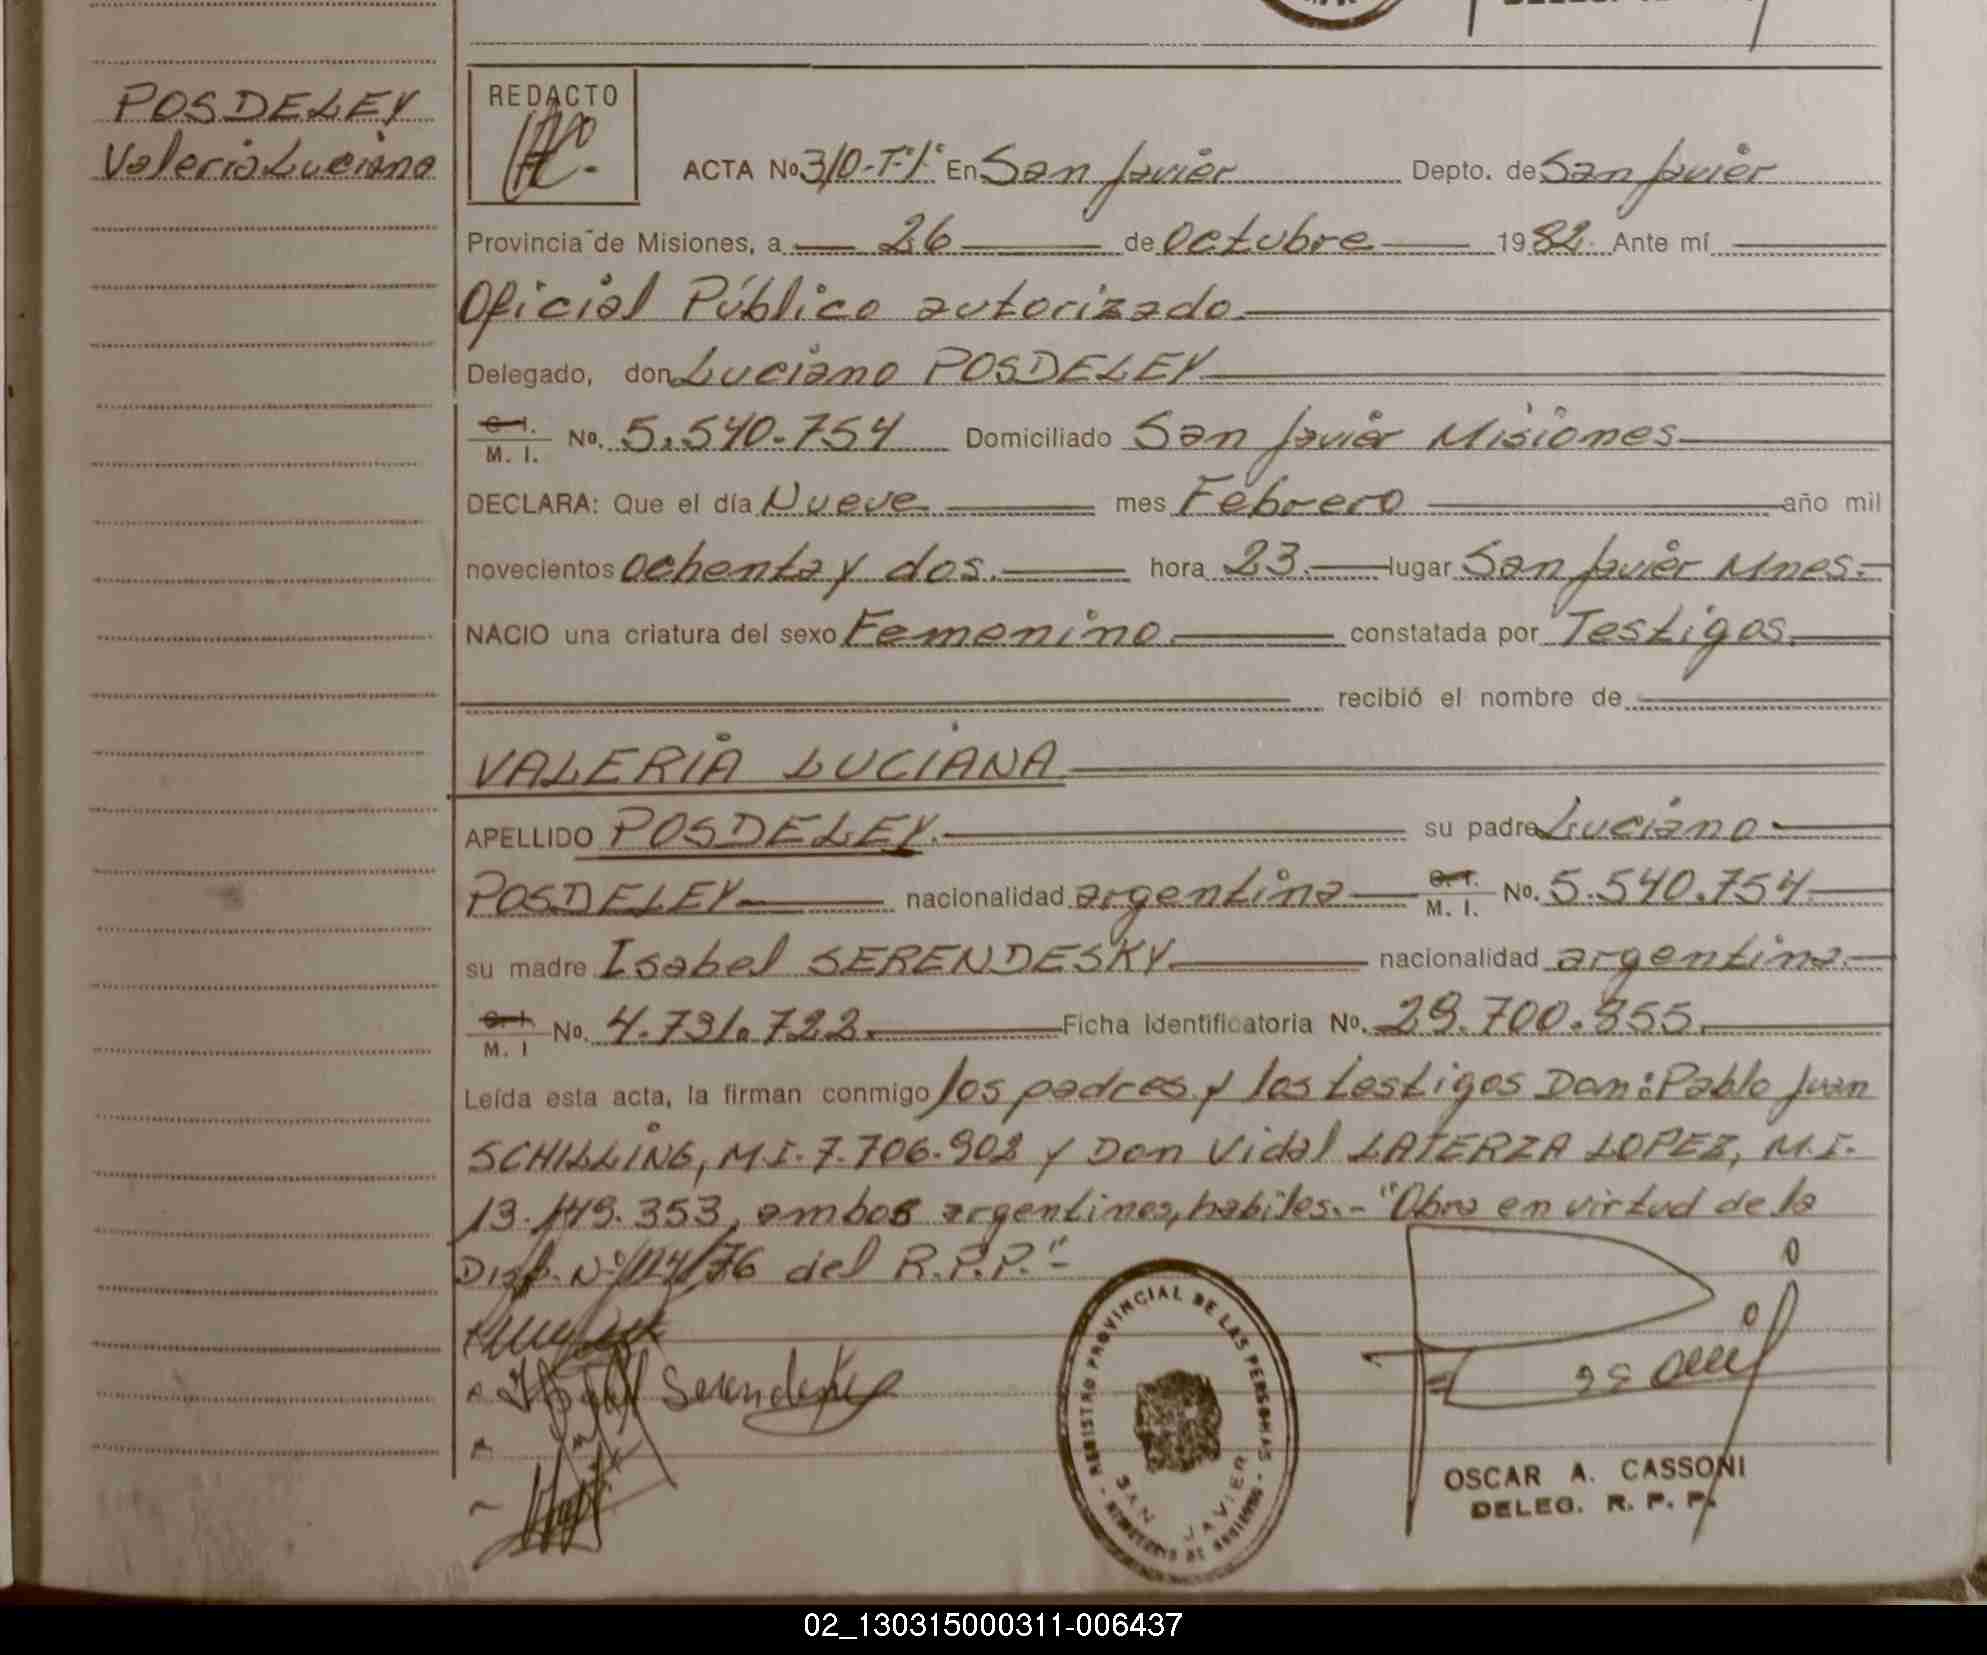 POSDELEY
Valeria Luciana
REDACTO
ACTA No 310-Tº1º En San Javier Depto. de San Javier
Provincia de Misiones, a 26 de Octubre 1982. Ante mí
Oficial Público autorizado.
Delegado, don Luciano POSDELEY
C. I. M. I. No. 5.540.754 Domiciliado San Javier Misiones
DECLARA: Que el día Nueve mes Febrero año mil
novecientos ochenta y dos. hora 23. lugar San Javier Mnes.
NACIO una criatura del sexo Femenino constatada por Testigos.
recibió el nombre de
VALERIA LUCIANA
APELLIDO POSDELEY. su padre Luciano
POSDELEY nacionalidad argentina C. I. M. I. No. 5.540.754
su madre Isabel SERENDESKY nacionalidad argentina.
C. I. M. I No. 4.731.722. Ficha Identificatoria No. 29.700.355.
Leída esta acta, la firman conmigo los padres y los testigos Don: Pablo Juan
SCHILLING, M.I. 7.706.902 y Don Vidal LATERZA LOPEZ, M.I.
13.149.353, ambos argentinos, hábiles.- "Obra en virtud de la
Disp. Nº 114/76 del R.P.P."-
Serendesky
REGISTRO PROVINCIAL DE LAS PERSONAS
SAN JAVIER
MINISTERIO DE GOBIERNO
OSCAR A. CASSONI
DELEG. R. P. P.
02_130315000311-006437